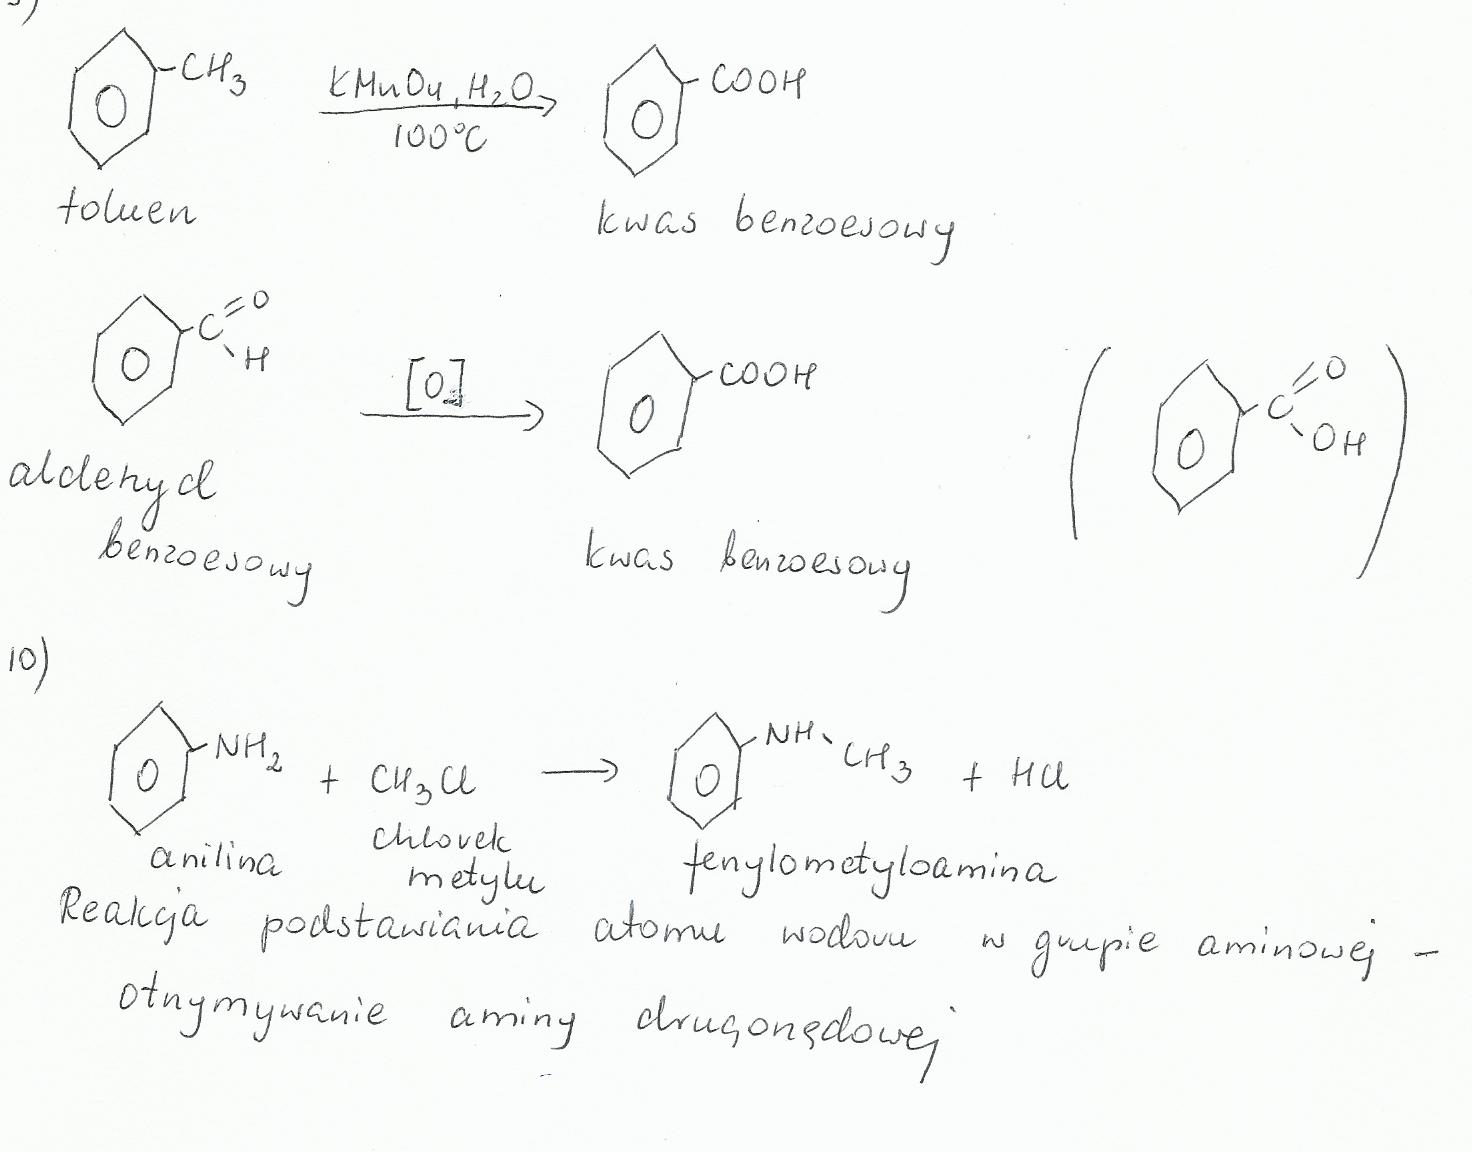 CH3 KMnO4, H2O COOH
100°C
toluen kwas benzoesowy
C=O
H [O] COOH C=O
OH
aldehyd
benzoesowy kwas benzoesowy
10)
NH2 + CH3Cl → NH CH3 + HCl
anilina chlorek fenylometyloamina
metylu
Reakcja podstawiania atomu wodoru w grupie aminowej -
otrzymywanie aminy drugorzędowej